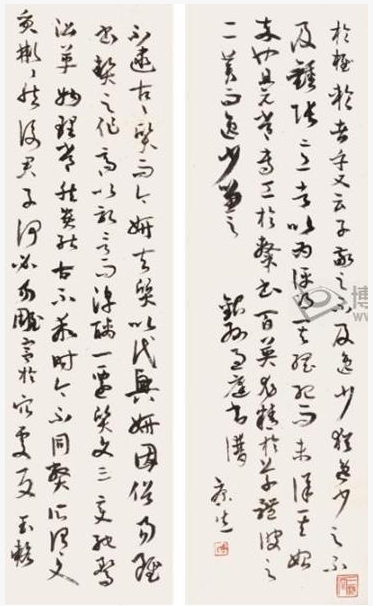 不逮古古質而今妍夫質以代興妍因俗易雖
書契之作適以記言而淳醨一遷質文三變馳鶩
沿革物理常然貴能古不乖時今不同弊所謂文
質彬彬然後君子何必易雕宮於穴處反玉輅
於椎輪者乎又云子敬之不及逸少猶逸少之不
及鍾張意者以為評得其綱紀而未詳其始
卒也且元常專工於隸書百英尤精於草體彼之
二美而逸少兼之 錄孫過庭書譜 康生